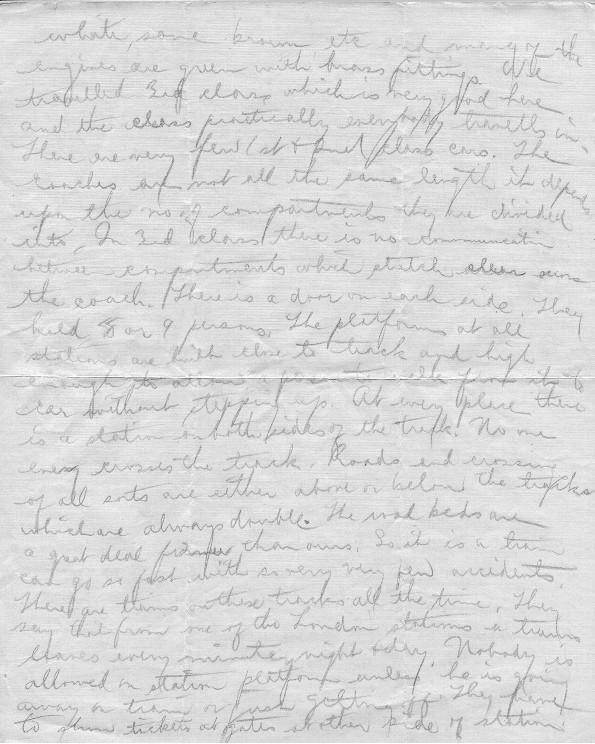 white, some brown etc and many of the
engines are green with brass fittings. We
travelled 3rd class which is very good here
and the class practically everybody travells in.
There are very few 1st & 2nd class cars. The
coaches are not all the same length it depends
upon the no of compartments they are divided
into. In 3rd class there is no communication
between compartments which stretch clear across
the coach. There is a door on each side. They
hold 8 or 9 persons. The platforms at all
stations are built close to track and high
enough to allow a person to walk from it to
car without stepping up. At every place there
is a station on both sides of the track. No one
ever crosses the track. Roads and crossing
of all sorts are either above or below the tracks
which are always double. The road beds are
a great deal firmer than ours. So it is a train
can go so fast with so very very few accidents.
There are trains on these tracks all the time. They
say that from one of the London stations a train
leaves every minute night & day. Nobody is
allowed on station platform unless he is going
away on train or just getting off. They have
to show tickets at gates at other side of station.